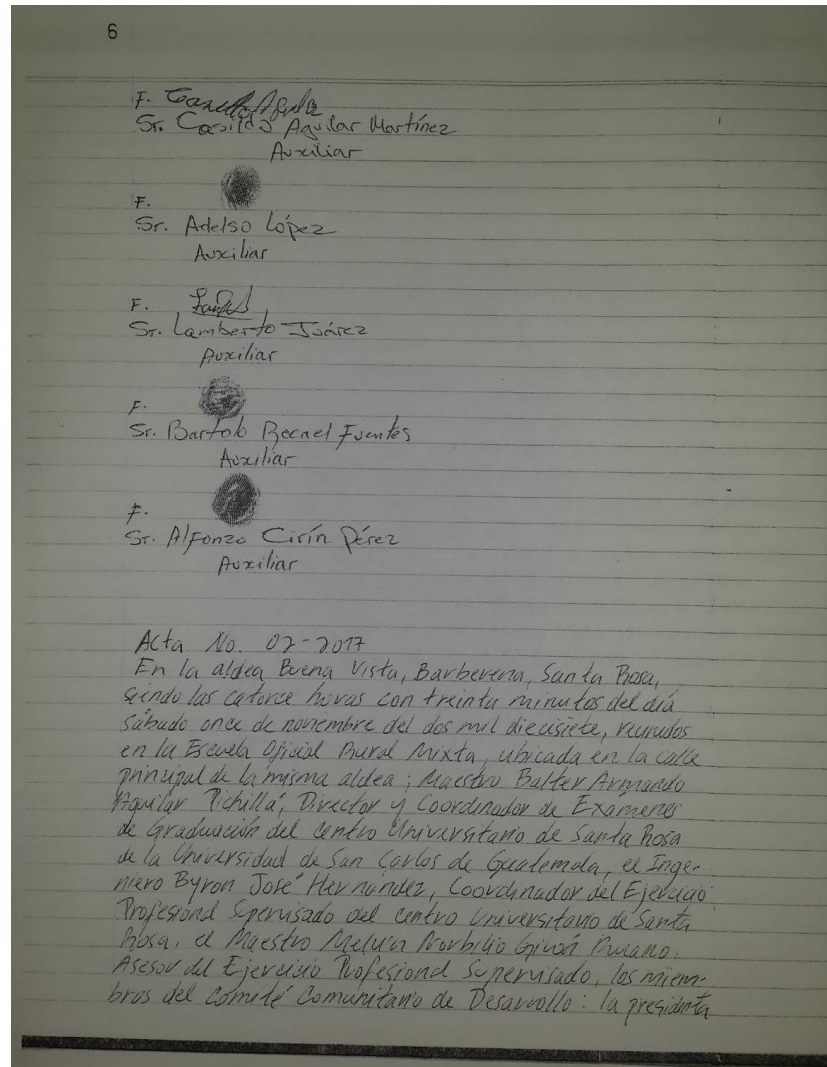 6
F.
Sr. Casildo Aguilar Martínez
Auxiliar
F.
Sr. Adelso López
Auxiliar
F.
Sr. Lamberto Juárez
Auxiliar
F.
Sr. Bartolo Fuentes
Auxiliar
F.
Sr. Alfonzo Cirín Pérez
Auxiliar
Acta No. 02-2017
En la aldea Buena Vista, Barberena, Santa Rosa,
siendo las catorce horas con treinta minutos del día
sábado once de noviembre del dos mil diecisiete, reunidos
en la Escuela Oficial Rural Mixta, ubicada en la calle
principal de la misma aldea; Maestro Balter Armando
Aguilar Pichillá, Director y Coordinador de Examenes
de Graduación del Centro Universitario de Santa Rosa
de la Universidad de San Carlos de Guatemala, el Inge-
niero Byron José Hernández, Coordinador del Ejercicio
Profesional Supervisado del centro Universitario de Santa
Rosa, el Maestro Melvin Girón
Asesor del Ejercicio Profesional Supervisado, los miem-
bros del Comité Comunitario de Desarrollo: la presidenta